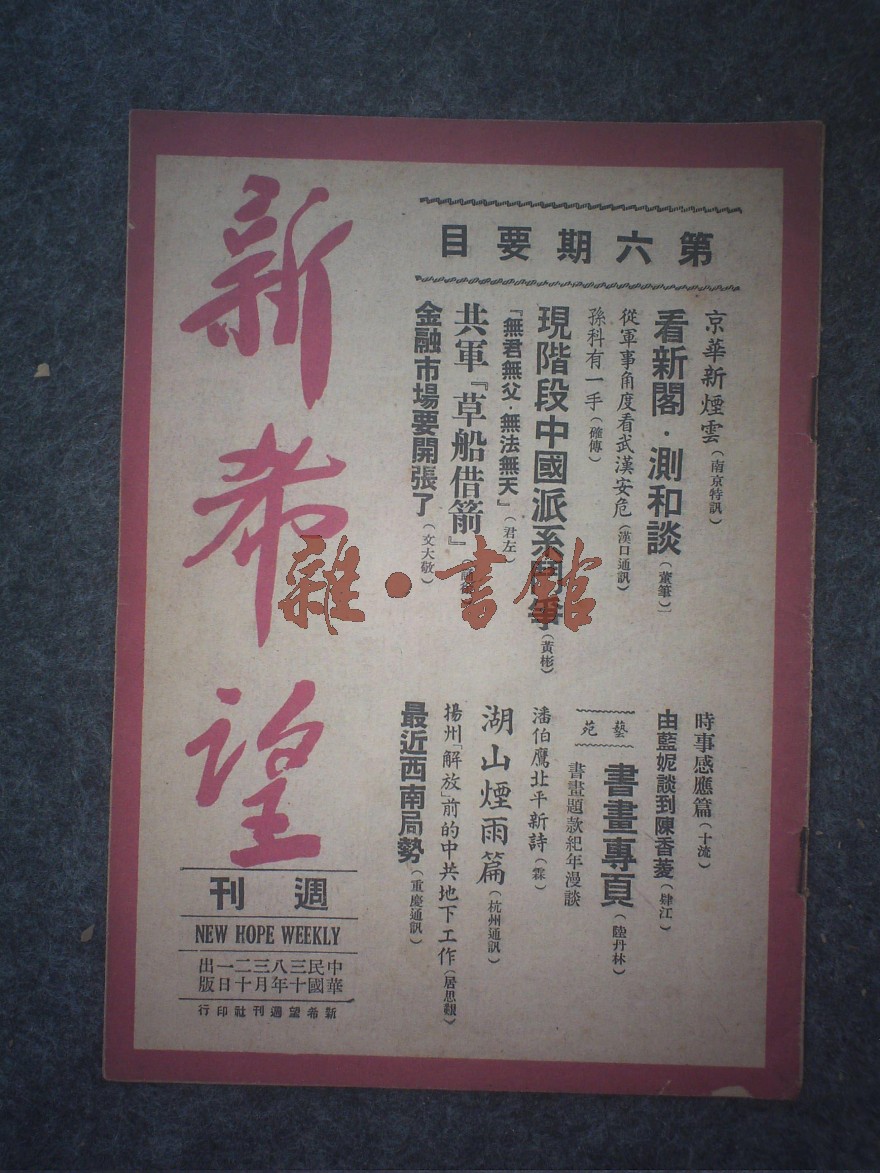 新希望
週刊
NEW HOPE WEEKLY
中華民國三十八年三月二十一日出版
新希望週刊社印行
第六期要目
京華新煙雲(南京特訊)
看新閣·測和談(董筆)
從軍事角度看武漢安危(漢口通訊)
孫科有一手(確傳)
現階段中國派系鬥爭(黃彬)
『無君無父·無法無天』(君左)
共軍『草船借箭』
金融市場要開張了(文大敬)
時事感應篇(十流)
由藍妮談到陳香菱(肆江)
藝苑
書畫專頁(陸丹林)
書畫題款紀年漫談
潘伯鷹北平新詩(霖)
湖山煙雨篇(杭州通訊)
揚州「解放」前的中共地下工作(居思觀)
最近西南局勢(重慶通訊)
雜·書館